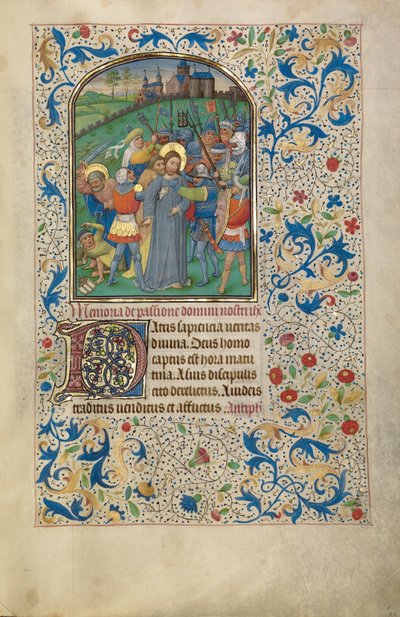 Memoria de passione domini nostri ih
Patris sapiencia ueritas
diuina. Deus homo
captus est hora matu
tina. A suis discipulis
cito derelictus. A iudeis
traditus uenditus et afflictus. Antiph